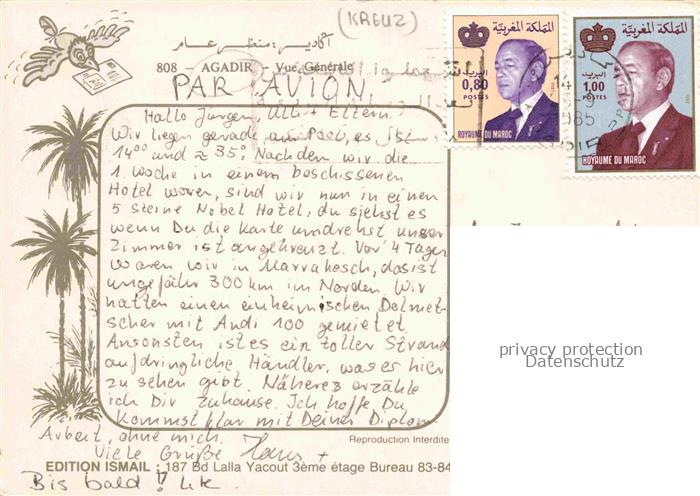 (KREUZ)
أكادير: منظر عام
808 - AGADIR - Vue Générale
PAR AVION
المملكة المغربية
البريد
0,80
POSTES
ROYAUME DU MAROC
المملكة المغربية
البريد
1,00
POSTES
ROYAUME DU MAROC
1985
Hallo Jürgen, Ulli + Eltern.
Wir liegen gerade am Pool, es ist
14°° und ≈ 35°. Nachdem wir die
1 Woche in einem beschissenen
Hotel waren, sind wir nun in einen
5 Sterne Nobel Hotel, du siehst es
wenn Du die Karte umdrehst unser
Zimmer ist angekreuzt. Vor 4 Tagen
waren wir in Marrakesch, das ist
ungefähr 300 km im Norden. Wir
hatten einen einheimischen Dolmet-
scher mit Audi 100 gemietet.
Ansonsten ist es ein toller Strand
aufdringliche Händler, was es hier
zu sehen gibt. Näheres erzähle
ich Dir zuhause. Ich hoffe, Du
kommst klar mit Deiner Diplom
Arbeit, ohne mich.
Viele Grüße Hans +
Bis bald!
Reproduction Interdite
EDITION ISMAIL : 187 Bd Lalla Yacout 3ème étage Bureau 83-84
privacy protection
Datenschutz